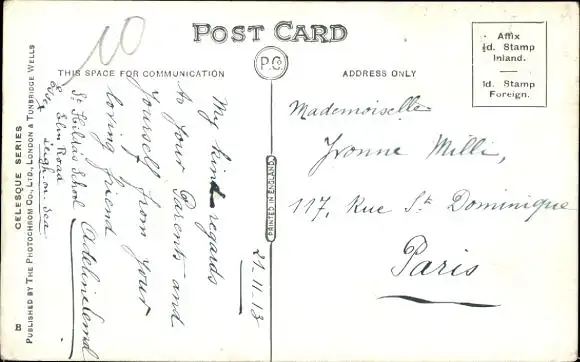 POST CARD
P.Co.
THIS SPACE FOR COMMUNICATION
ADDRESS ONLY
Affix
½d. Stamp
Inland.
1d. Stamp
Foreign.
10
My kind regards
to your Parents and
yourself from your
loving friend
Adeline
St Hilda's School
Elm Road
Leigh on Sea
21.11.13
Mademoiselle
Yvonne Milli,
117, Rue St Dominique
Paris
PRINTED IN ENGLAND.
CELESQUE SERIES
PUBLISHED BY THE PHOTOCHROM CO., LTD., LONDON & TUNBRIDGE WELLS
B